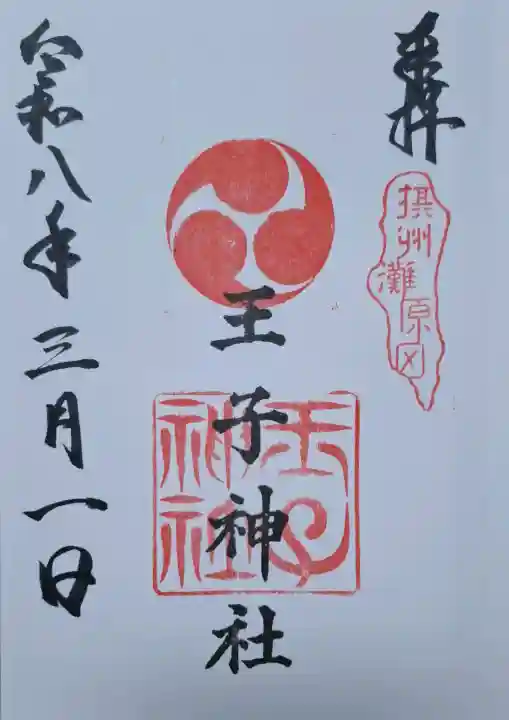 奉拝
摂州灘原田
王子神社
王子神社
令和八年三月一日